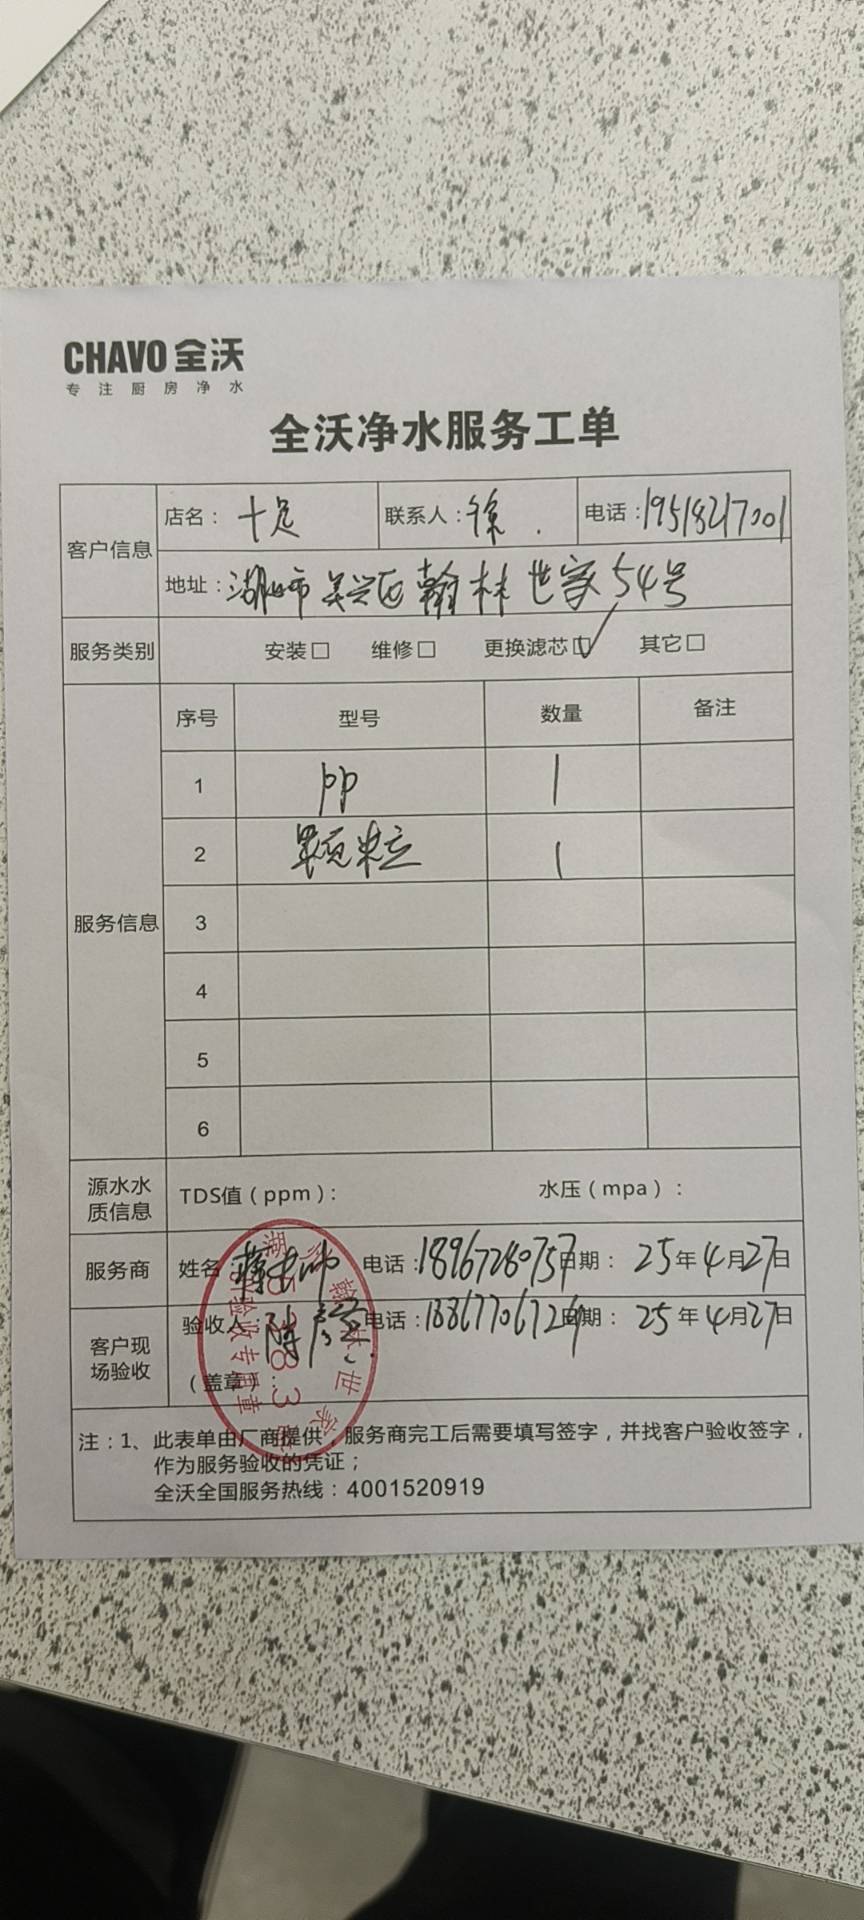 CHAVO 全沃
专注厨房净水
全沃净水服务工单
客户信息 店名：十足 联系人：徐. 电话：19518217001
地址：湖州市吴兴区翰林世家54号
服务类别 安装□ 维修□ 更换滤芯☑ 其它□
服务信息 序号 型号 数量 备注
1 pp 1
2 颗粒 1
3
4
5
6
源水水质信息 TDS值（ppm）： 水压（mpa）：
服务商 姓名 电话：18967280757 日期： 25年4月27日
客户现场验收 验收人： 电话： 日期： 25年4月27日
（盖章）：
验收专用章
世家
注：1、此表单由厂商提供，服务商完工后需要填写签字，并找客户验收签字，
作为服务验收的凭证；
全沃全国服务热线：4001520919